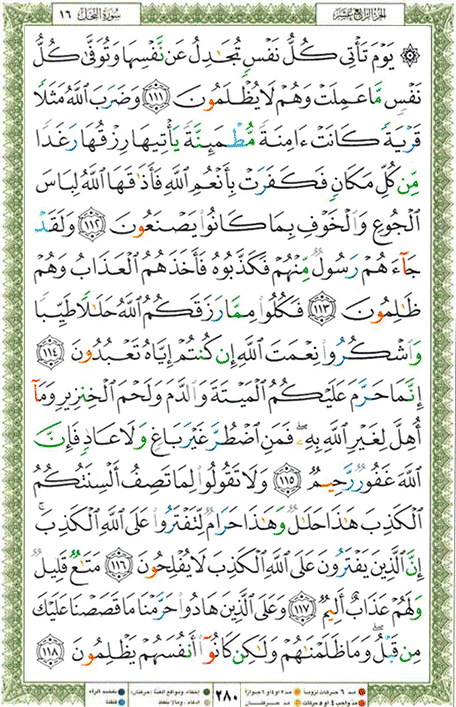 الجزء الرابع عشر سورة النحل ١٦
۞ يَوْمَ تَأْتِى كُلُّ نَفْسٍ تُجَٰدِلُ عَن نَّفْسِهَا وَتُوَفَّىٰ كُلُّ
نَفْسٍ مَّا عَمِلَتْ وَهُمْ لَا يُظْلَمُونَ ١١١ وَضَرَبَ اللَّهُ مَثَلًا
قَرْيَةً كَانَتْ ءَامِنَةً مُّطْمَئِنَّةً يَأْتِيهَا رِزْقُهَا رَغَدًا
مِّن كُلِّ مَكَانٍ فَكَفَرَتْ بِأَنْعُمِ اللَّهِ فَأَذَٰقَهَا اللَّهُ لِبَاسَ
الْجُوعِ وَالْخَوْفِ بِمَا كَانُوا يَصْنَعُونَ ١١٢ وَلَقَدْ
جَآءَهُمْ رَسُولٌ مِّنْهُمْ فَكَذَّبُوهُ فَأَخَذَهُمُ الْعَذَابُ وَهُمْ
ظَٰلِمُونَ ١١٣ فَكُلُوا مِمَّا رَزَقَكُمُ اللَّهُ حَلَٰلًا طَيِّبًا
وَاشْكُرُوا نِعْمَتَ اللَّهِ إِن كُنتُمْ إِيَّاهُ تَعْبُدُونَ ١١٤
إِنَّمَا حَرَّمَ عَلَيْكُمُ الْمَيْتَةَ وَالدَّمَ وَلَحْمَ الْخِنزِيرِ وَمَآ
أُهِلَّ لِغَيْرِ اللَّهِ بِهِۦ ۖ فَمَنِ اضْطُرَّ غَيْرَ بَاغٍ وَلَا عَادٍ فَإِنَّ
اللَّهَ غَفُورٌ رَّحِيمٌ ١١٥ وَلَا تَقُولُوا لِمَا تَصِفُ أَلْسِنَتُكُمُ
الْكَذِبَ هَٰذَا حَلَٰلٌ وَهَٰذَا حَرَامٌ لِّتَفْتَرُوا عَلَى اللَّهِ الْكَذِبَ ۚ
إِنَّ الَّذِينَ يَفْتَرُونَ عَلَى اللَّهِ الْكَذِبَ لَا يُفْلِحُونَ ١١٦ مَتَٰعٌ قَلِيلٌ
وَلَهُمْ عَذَابٌ أَلِيمٌ ١١٧ وَعَلَى الَّذِينَ هَادُوا حَرَّمْنَا مَا قَصَصْنَا عَلَيْكَ
مِن قَبْلُ ۖ وَمَا ظَلَمْنَٰهُمْ وَلَٰكِن كَانُوٓا أَنفُسَهُمْ يَظْلِمُونَ ١١٨
٢٨٠
مد ٦ حركات لزوما مد ٢ او ٤ او ٦ جوازا إخفاء، ومواقع الغنة (حركتان) تفخيم الراء
مد واجب ٤ او ٥ حركات مد حركتان ادغام، وما لا يلفظ قلقلة